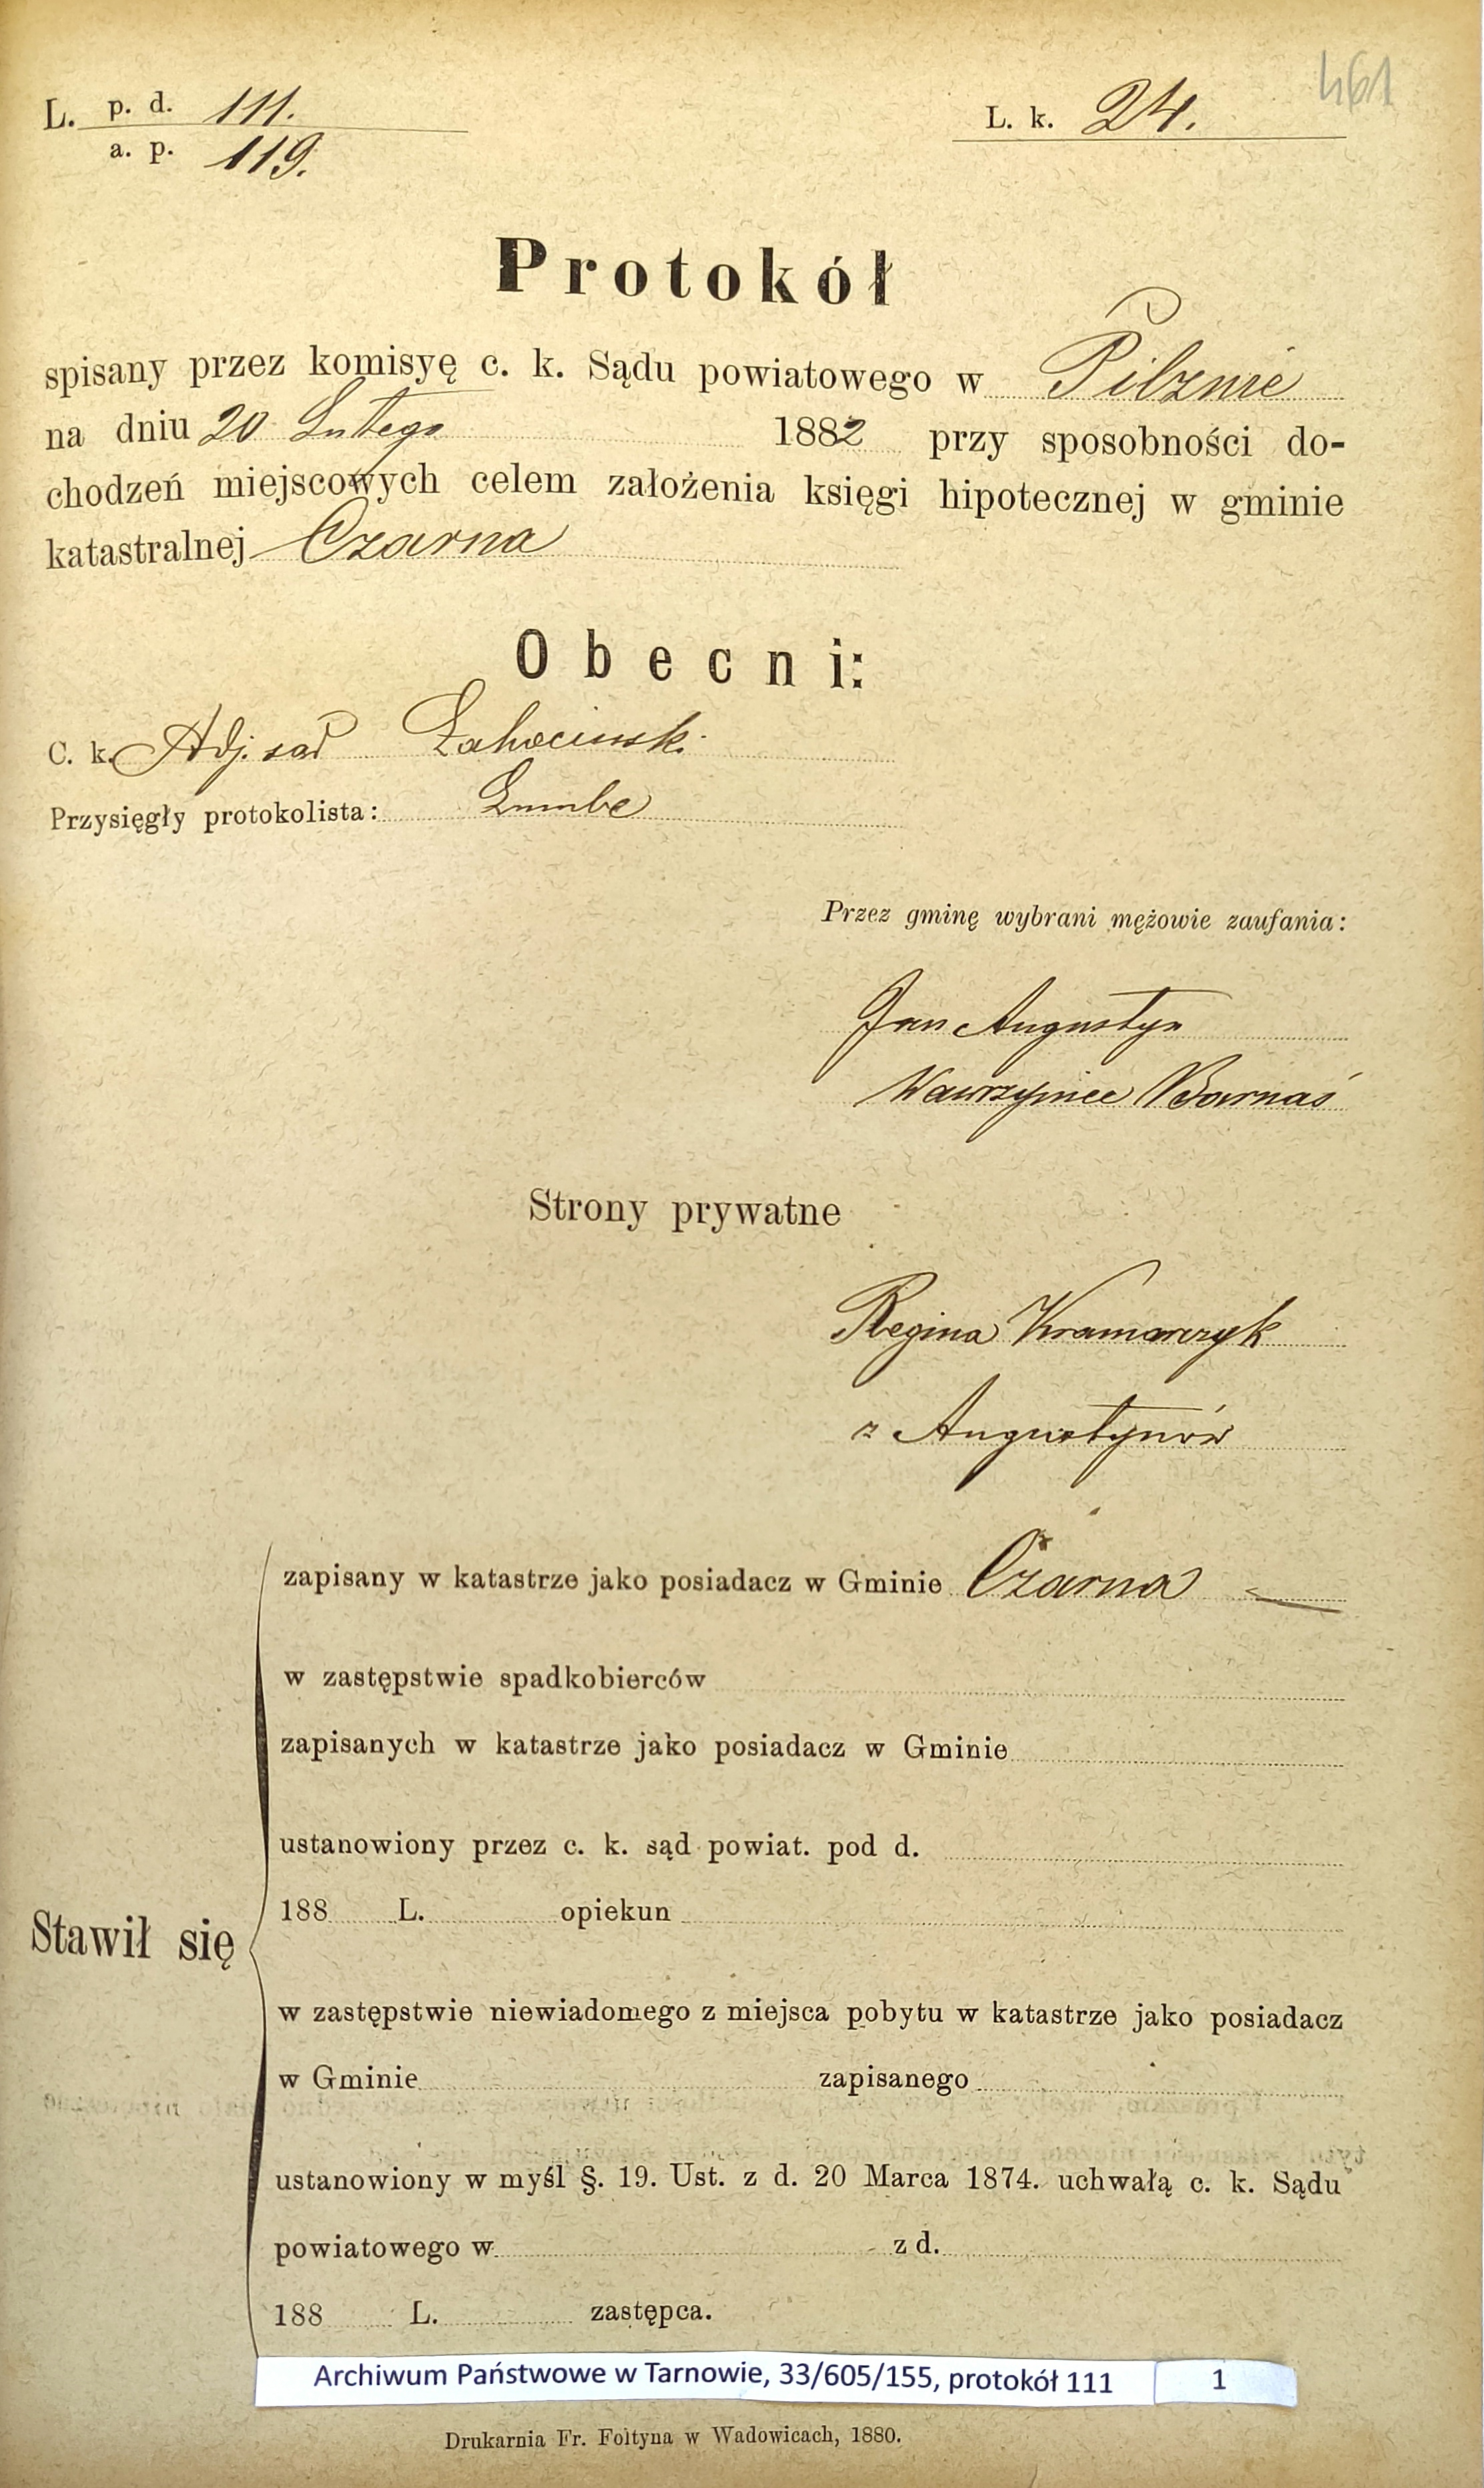 461
L. p. d. 111.
a. p. 119.
L. k. 24.
Protokół
spisany przez komisyę c. k. Sądu powiatowego w Pilznie
na dniu 20 Lutego 1882 przy sposobności do-
chodzeń miejscowych celem założenia księgi hipotecznej w gminie
katastralnej Czarna
Obecni:
C. k. Adj. sąd
Przysięgły protokolista:
Przez gminę wybrani mężowie zaufania:
Jan Augustyn
Wawrzyniec Barnaś
Strony prywatne
Regina Kramarczyk
z Augustynów
Stawił się
zapisany w katastrze jako posiadacz w Gminie Czarna
w zastępstwie spadkobierców
zapisanych w katastrze jako posiadacz w Gminie
ustanowiony przez c. k. sąd powiat. pod d.
188 L. opiekun
w zastępstwie niewiadomego z miejsca pobytu w katastrze jako posiadacz
w Gminie zapisanego
ustanowiony w myśl §. 19. Ust. z d. 20 Marca 1874. uchwałą c. k. Sądu
powiatowego w z d.
188 L. zastępca.
Archiwum Państwowe w Tarnowie, 33/605/155, protokół 111 1
Drukarnia Fr. Foltyna w Wadowicach, 1880.